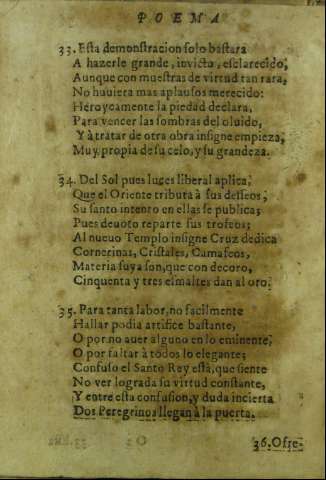 POEMA
33. Esta demonstracion solo bastara
A hazerle grande, invicto, esclarecido,
Aunque con muestras de virtud tan rara,
No huuiera mas aplausos merecido:
Heroycamente la piedad declara,
Para vencer las sombras del oluido,
Y à tratar de otra obra insigne empieza,
Muy propia de su celo, y su grandeza.
34. Del Sol pues luces liberal aplica,
Que el Oriente tributa à sus desseos,
Su santo intento en ellas se publica;
Pues deuoto reparte sus trofeos;
Al nueuo Templo insigne Cruz dedica
Cornerinas, Cristales, Camafeos,
Materia suya son, que con decoro,
Cinquenta y tres esmaltes dan al oro.
35. Para tanta labor, no facilmente
Hallar podia artifice bastante,
O por no auer alguno en lo eminente,
O por faltar à todos lo elegante;
Confuso el Santo Rey està, que siente
No ver lograda su virtud constante,
Y entre esta confusion, y duda incierta
Dos Peregrinos llegan à la puerta.
36. Ofre-